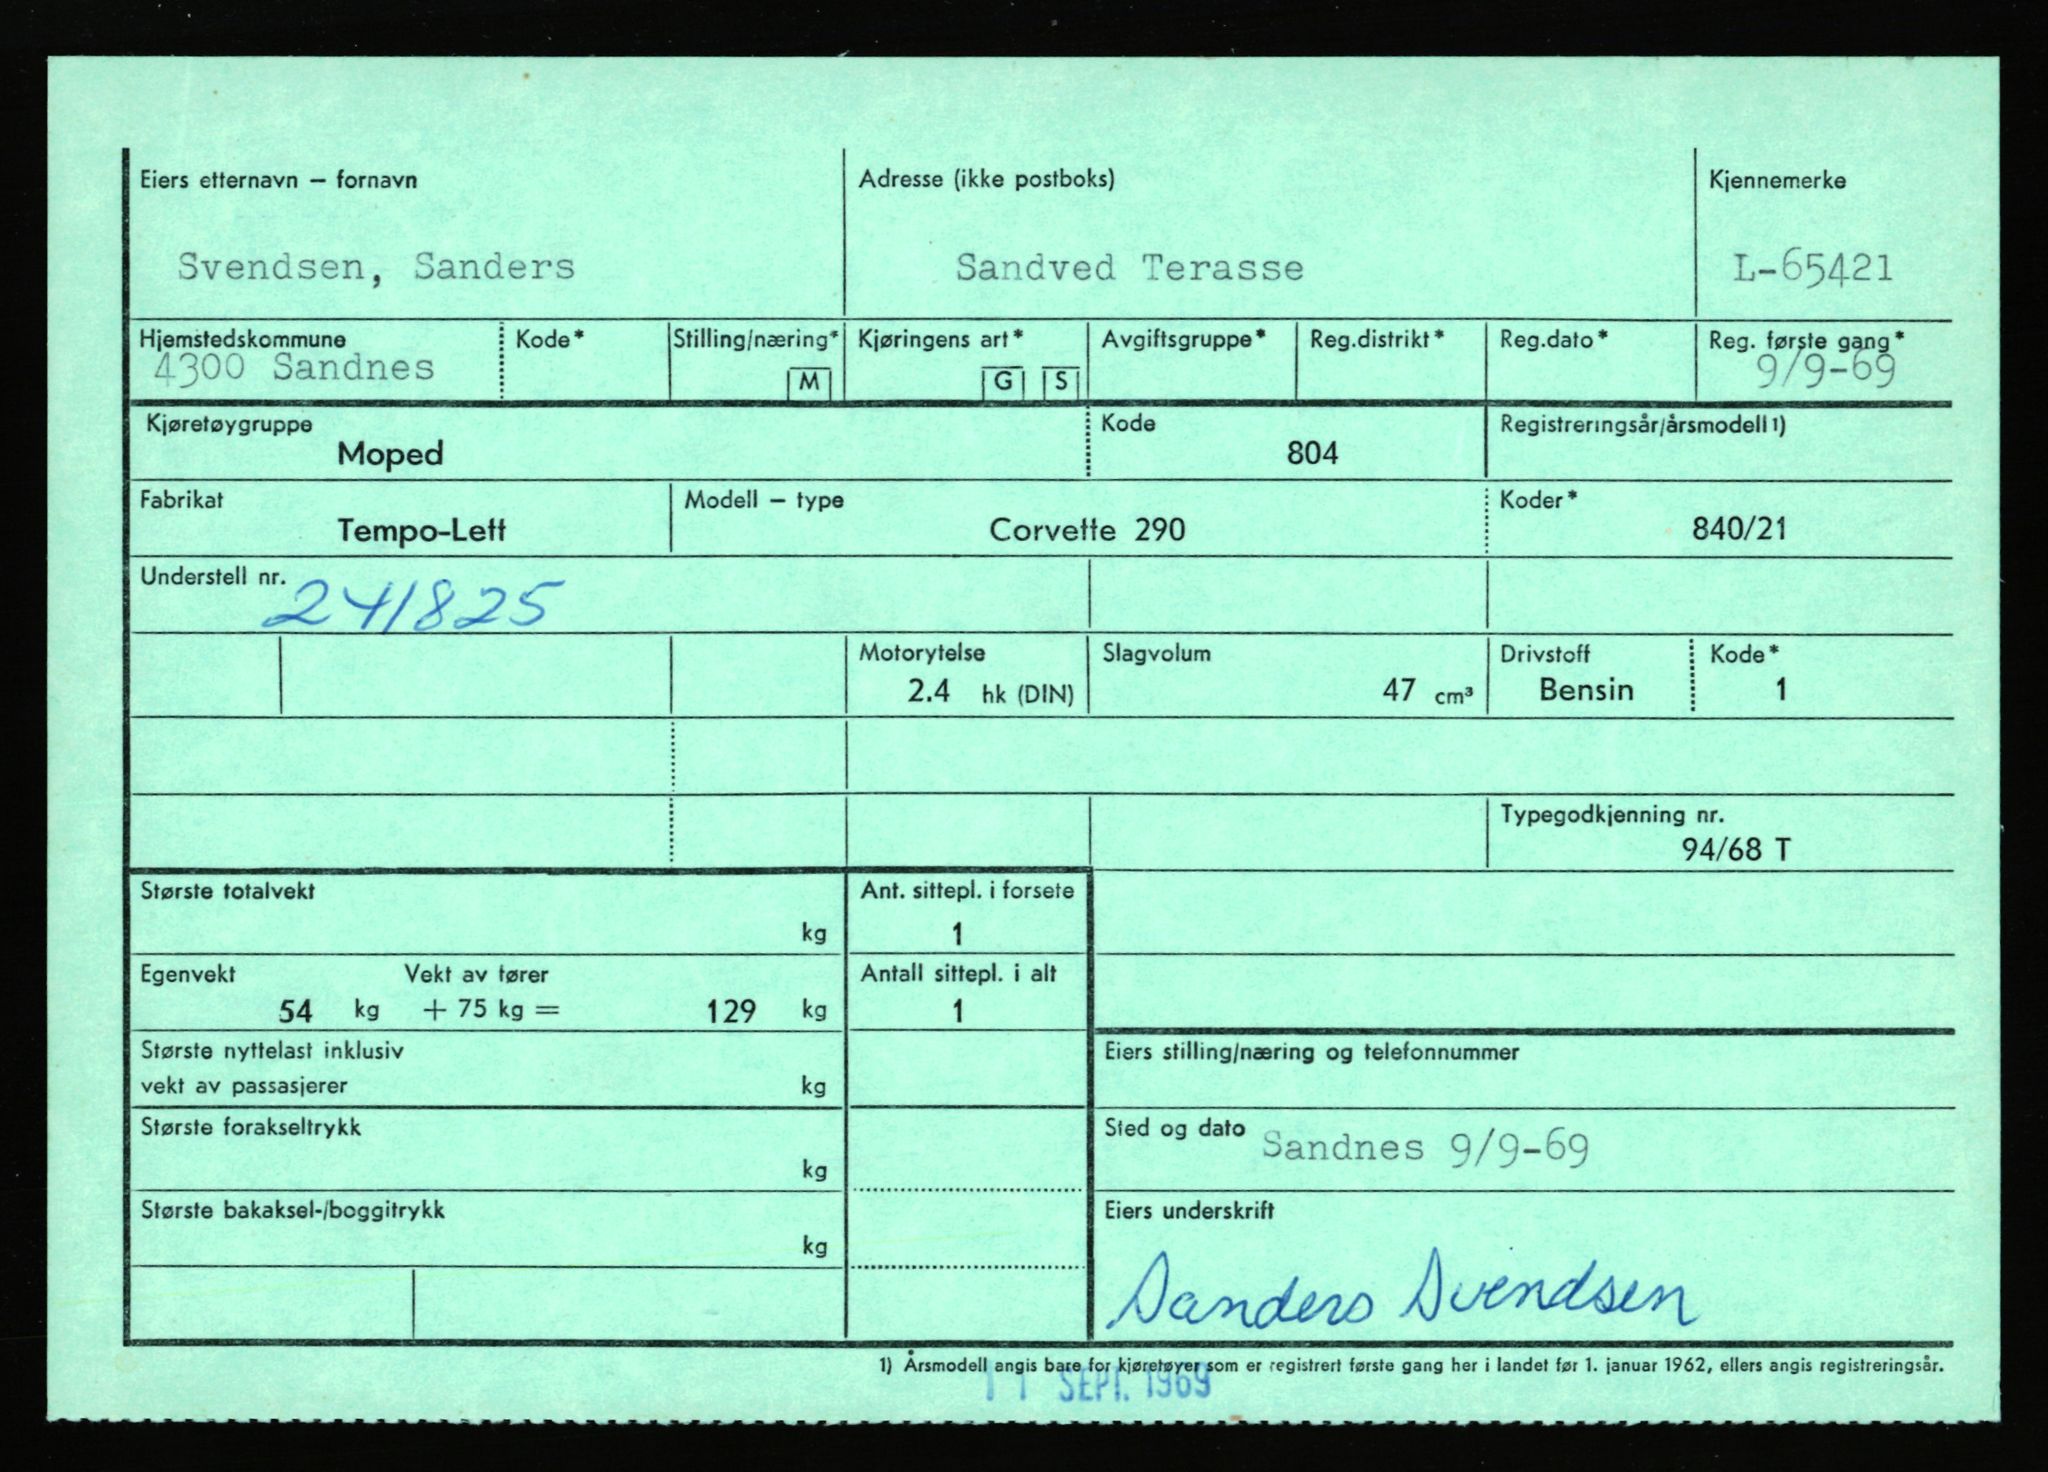 Eiers etternavn – fornavn
Adresse (ikke postboks)
Kjennemerke
Svendsen, Sanders
Sandved Terasse
L-65421
Hjemstedskommune
Kode*
Stilling/næring*
Kjøringens art*
Avgiftsgruppe*
Reg.distrikt*
Reg.dato*
Reg. første gang*
4300 Sandnes
M
G
S
9/9-69
Kjøretøygruppe
Kode
Registreringsår/årsmodell 1)
Moped
804
Fabrikat
Modell – type
Koder*
Tempo-Lett
Corvette 290
840/21
Understell nr.
241825
Motorytelse
Slagvolum
Drivstoff
Kode*
2.4 hk (DIN)
47 cm³
Bensin
1
Typegodkjenning nr.
94/68 T
Største totalvekt
kg
Ant. sittepl. i forsete
1
Egenvekt
Vekt av fører
Antall sittepl. i alt
54 kg + 75 kg = 129 kg
1
Største nyttelast inklusiv
vekt av passasjerer
kg
Eiers stilling/næring og telefonnummer
Største forakseltrykk
kg
Sted og dato
Sandnes 9/9-69
Største bakaksel-/boggitrykk
kg
Eiers underskrift
Sanders Svendsen
1) Årsmodell angis bare for kjøretøyer som er registrert første gang her i landet før 1. januar 1962, ellers angis registreringsår.
11 SEPT. 1969